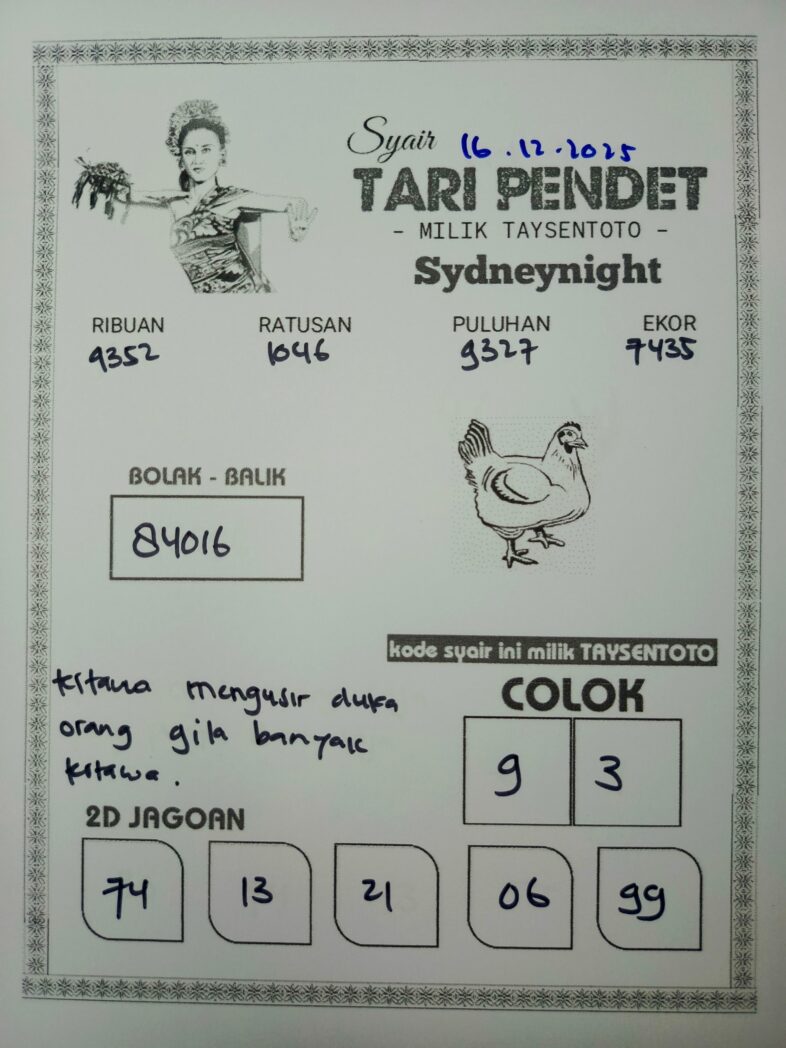 Syair 16.12.2025
TARI PENDET
- MILIK TAYSENTOTO -
Sydneynight
RIBUAN RATUSAN PULUHAN EKOR
9352 1046 9327 7435
BOLAK - BALIK
84016
kode syair ini milik TAYSENTOTO
ketawa mengusir duka
orang gila banyak
ketawa.
COLOK
9 3
2D JAGOAN
74 13 21 06 99